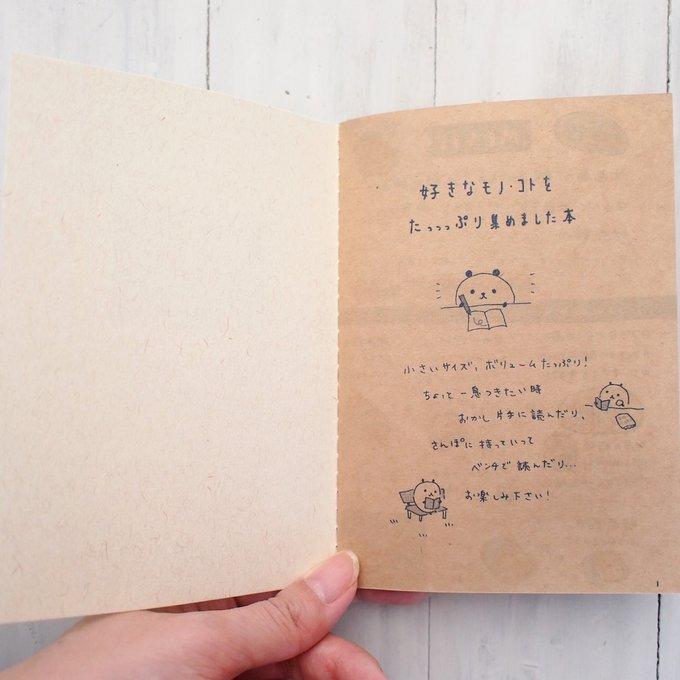 好きなモノ・コトを
たっっっぷり集めました本
小さいサイズ、ボリュームたっぷり!
ちょっと一息つきたい時
おかし片手に読んだり、
さんぽに持っていって
ベンチで読んだり...
お楽しみ下さい!
1